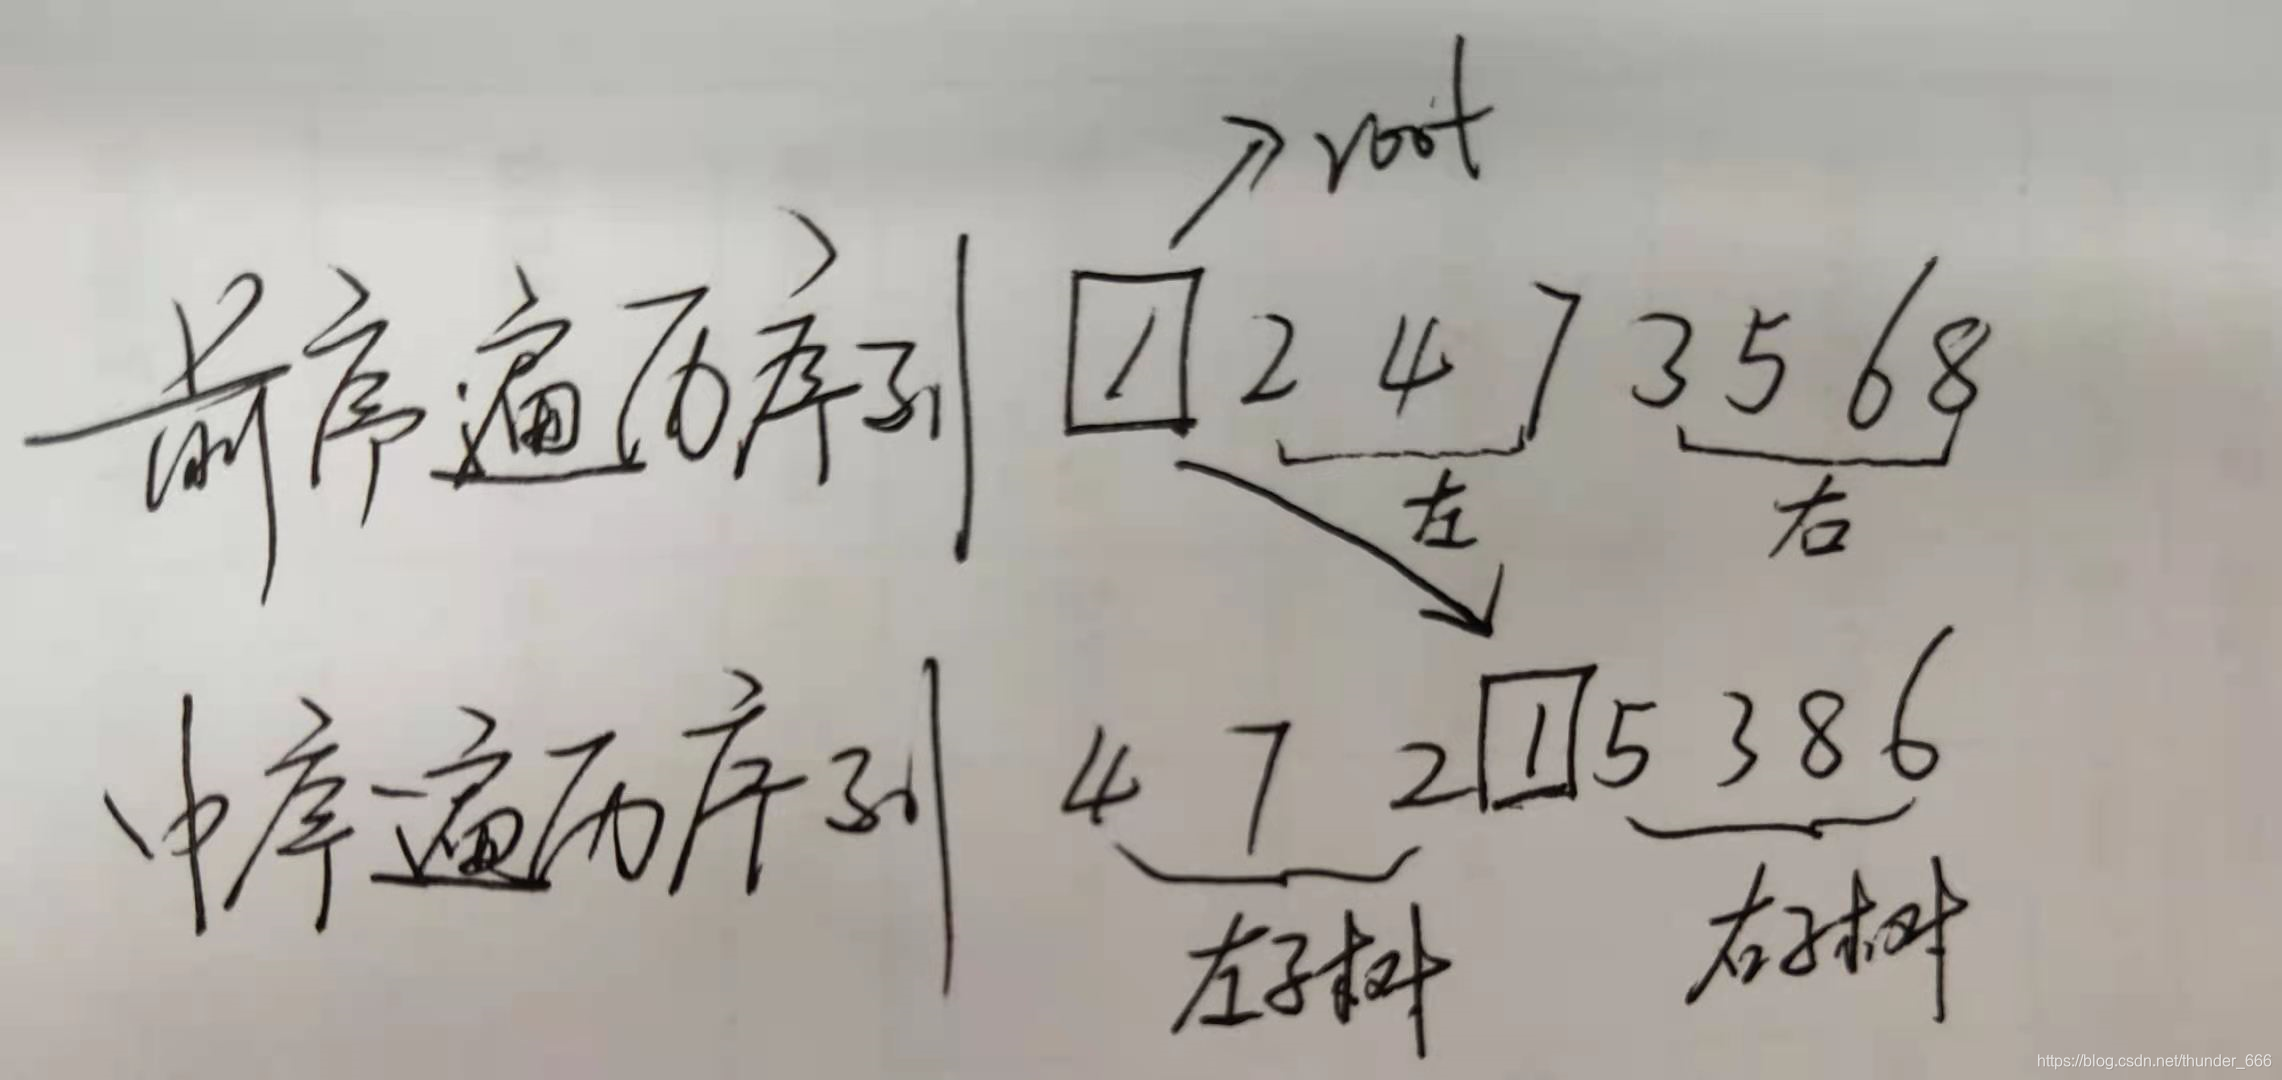 root
前序遍历序列 1 2 4 7 3 5 6 8
左 右
中序遍历序列 4 7 2 1 5 3 8 6
左子树 右子树
https://blog.csdn.net/thunder_666